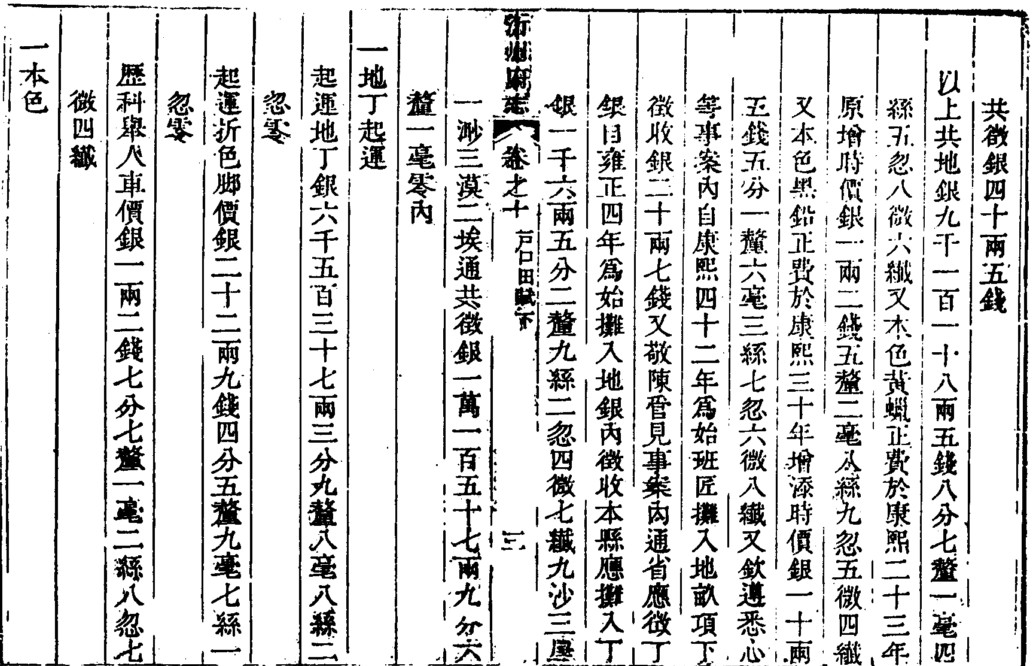 共徵銀四十兩五錢
以上共地銀九千一百一十八兩五錢八分七釐一毫四
絲五忽八微六纖又本色黃蠟正費於康熙二十三年
原增時價銀一兩二錢五釐二毫八絲九忽五微四纖
又本色黑鉛正費於康熙三十年增添時價銀一十兩
五錢五分一釐六毫三絲七忽六微八纖又欽遵悉心
等事案內自康熙四十二年爲始班匠攤入地畝項下
徵收銀二十兩七錢又敬陳管見事案內通省應徵丁
銀自雍正四年爲始攤入地銀內徵收本縣應攤入丁
銀一千六兩五分二釐九絲二忽四微七纖九沙三塵
沂州府志 卷之十 戶口田賦下 三
一渺三漠二埃通共徵銀一萬一百五十七兩九分六
釐一毫零內
一地丁起運
起運地丁銀六千五百三十七兩三分九釐八毫八絲二
忽零
起運折色脚價銀二十二兩九錢四分五釐九毫七絲一
忽零
歷科舉人車價銀一兩二錢七分七釐一毫二絲八忽七
微四纖
一本色